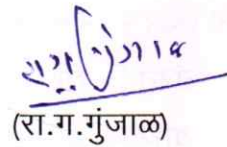 (रा.ग.गुंजाळ)